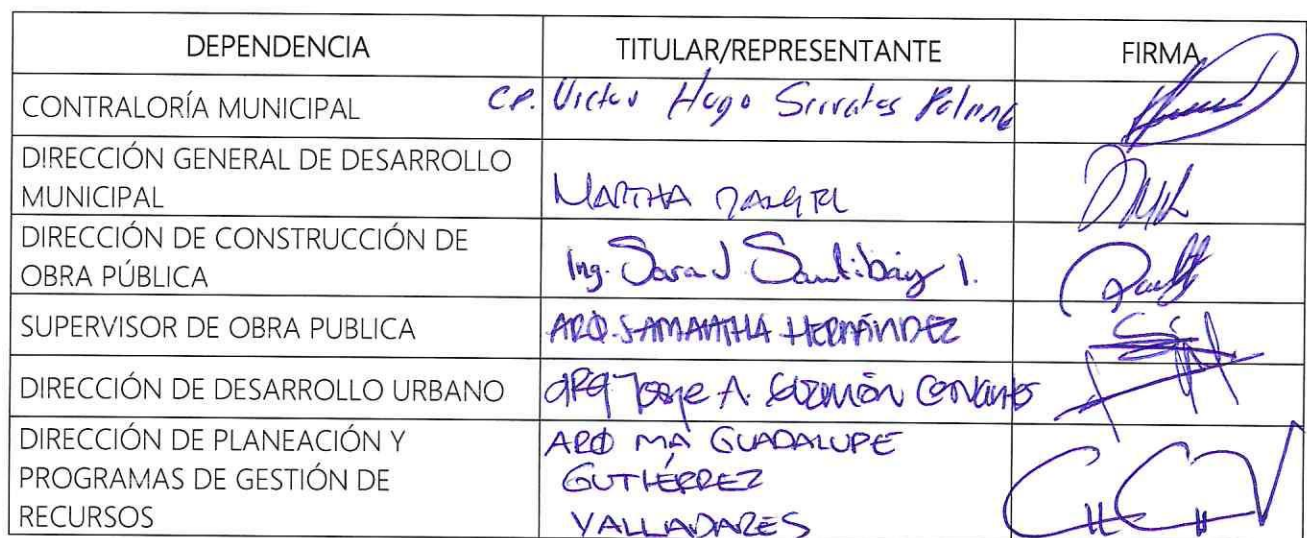 DEPENDENCIA TITULAR/REPRESENTANTE FIRMA
CONTRALORÍA MUNICIPAL C.P. Victor Hugo
DIRECCIÓN GENERAL DE DESARROLLO
MUNICIPAL MARTHA RANGEL
DIRECCIÓN DE CONSTRUCCIÓN DE
OBRA PÚBLICA Ing. Sara J Santibáñez I.
SUPERVISOR DE OBRA PUBLICA ARQ. SAMANTHA HERNÁNDEZ
DIRECCIÓN DE DESARROLLO URBANO arq Jorge A. Guzmán Cervantes
DIRECCIÓN DE PLANEACIÓN Y ARQ MA GUADALUPE
PROGRAMAS DE GESTIÓN DE GUTIÉRREZ
RECURSOS VALLADARES